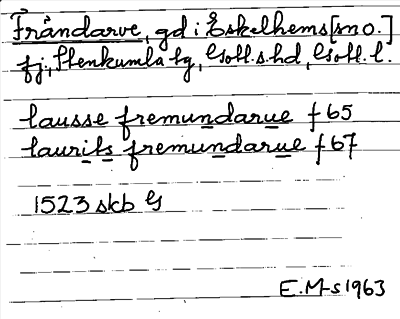 Frändarve, gd i Eskelhems [sn o.]
fj, Stenkumla tg, Gotl. s. hd, Gotl. l.
lausse fremundarue f 65
laurits fremundarue f 67
1523 skb G
E. M-s 1963